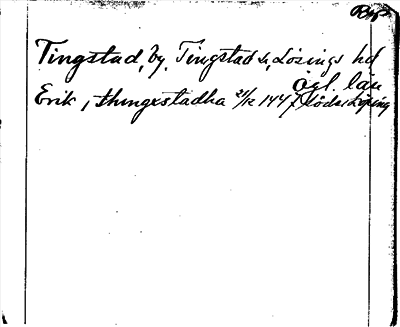 Tingstad, by, Tingstad s., Lösings hd
Ögl. län
Erik, thingxstadha 21/12 1447 Söderköping